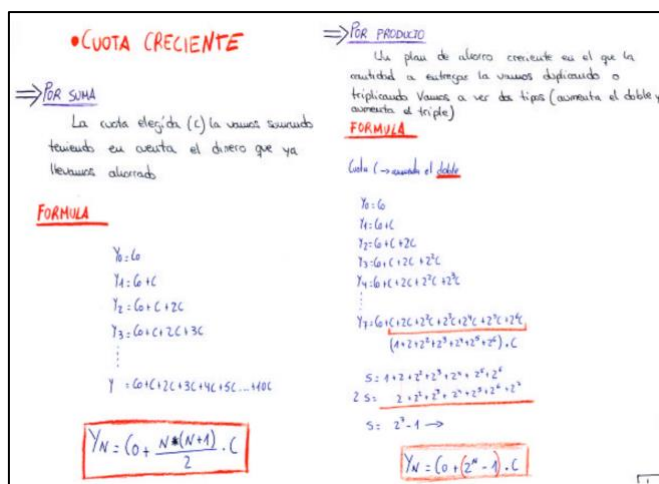 •CUOTA CRECIENTE
⇒POR SUMA
La cuota elegida (C) la vamos sumando
teniendo en cuenta el dinero que ya
llevamos ahorrado
FORMULA
Y0=C0
Y1=C0+C
Y2=C0+C+2C
Y3=C0+C+2C+3C
⋮
Y =C0+C+2C+3C+4C+5C...+10C
YN=C0+ N*(N+1)/2 . C
⇒POR PRODUCTO
Un plan de ahorro creciente en el que la
cantidad a entregar la vamos duplicando o
triplicando Vamos a ver dos tipos (aumenta el doble y
aumenta el triple)
FORMULA
Cuota C→aumenta el doble
Y0=C0
Y1=C0+C
Y2=C0+C+2C
Y3=C0+C+2C+2²C
Y4=C0+C+2C+2²C+2³C
⋮
Y7=C0+C+2C+2²C+2³C+2⁴C+2⁵C+2⁶C
(1+2+2²+2³+2⁴+2⁵+2⁶).C
S=1+2+2²+2³+2⁴+2⁵+2⁶
2S= 2+2²+2³+2⁴+2⁵+2⁶+2⁷
S= 2⁷-1→
YN=C0+(2ᴺ-1).C